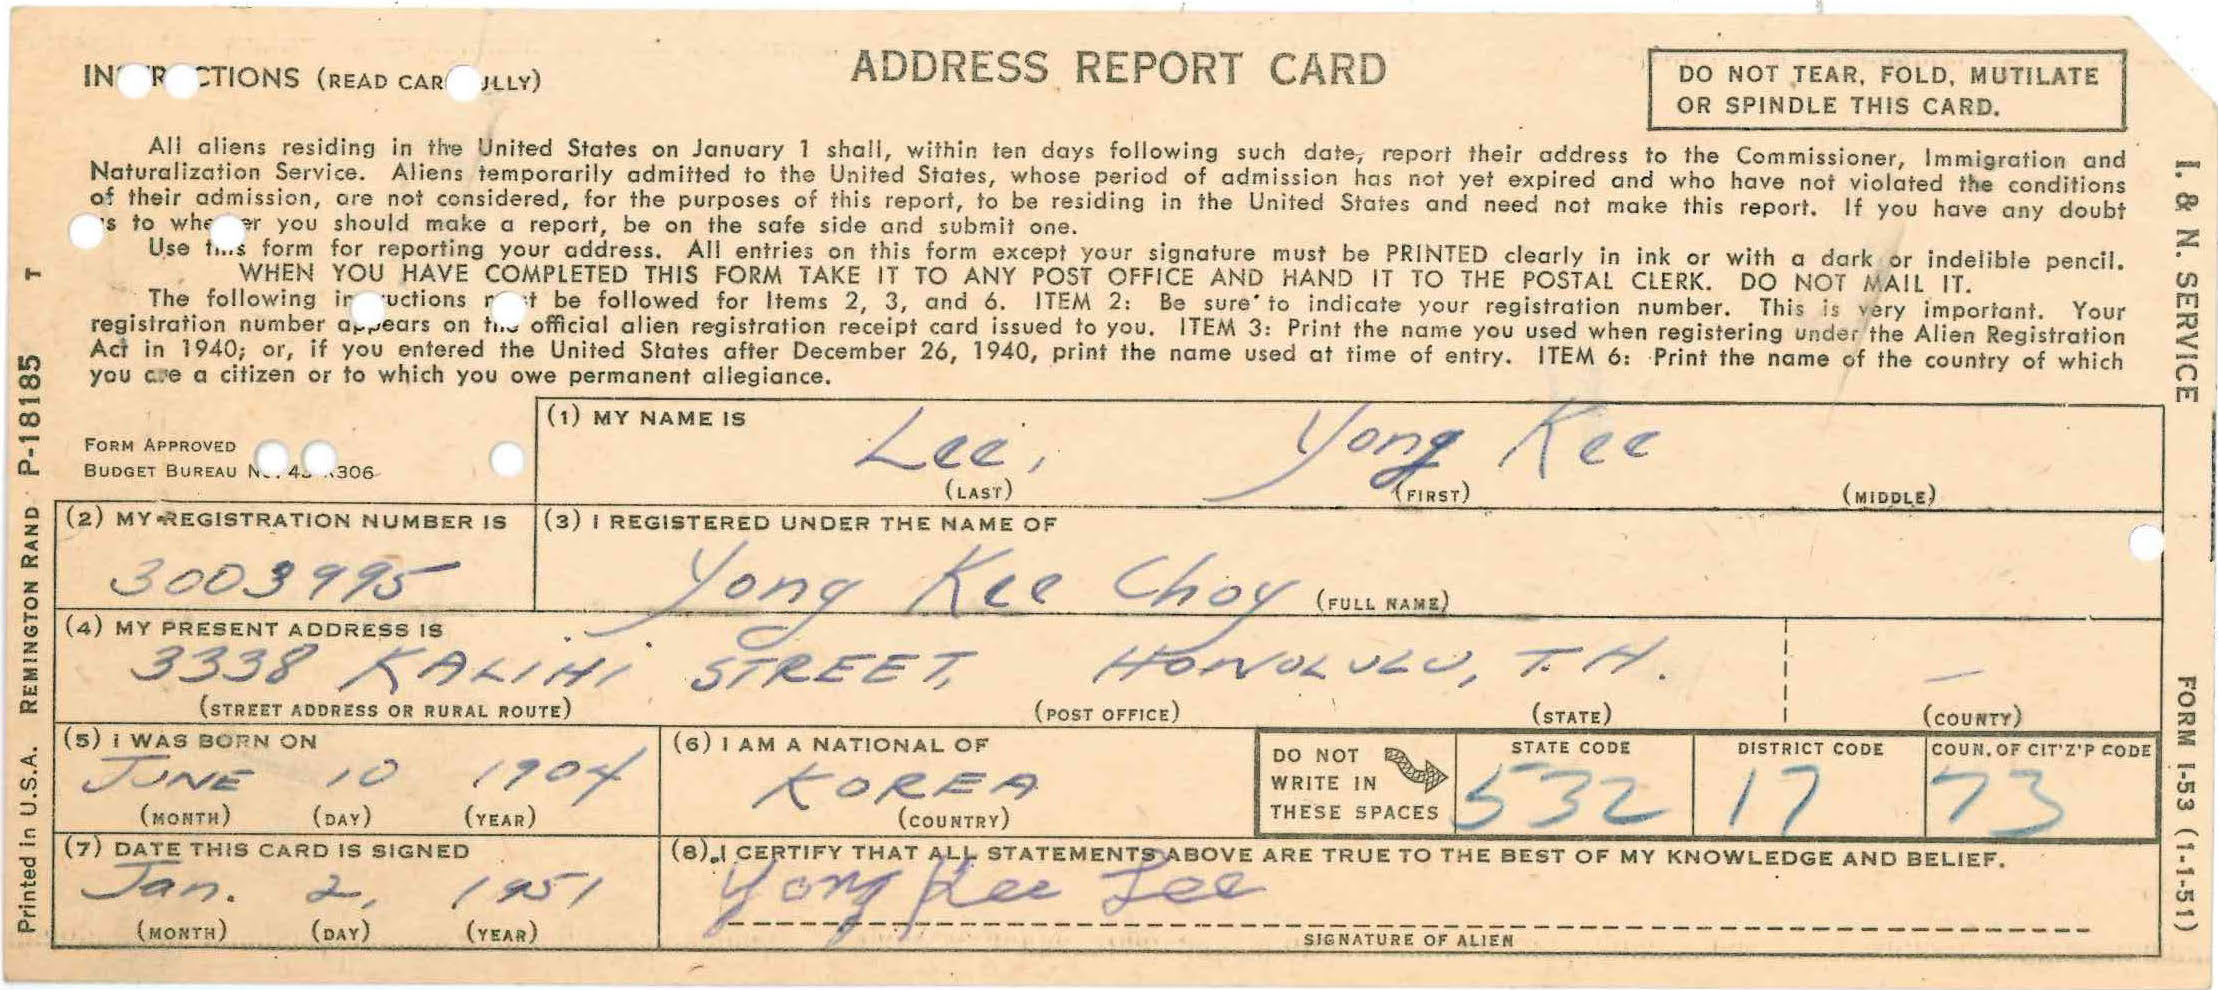 ADDRESS REPORT CARD
IN R CTIONS (READ CAR ULLY)
DO NOT TEAR, FOLD, MUTILATE
OR SPINDLE THIS CARD.
All aliens residing in the United States on January 1 shall, within ten days following such date, report their address to the Commissioner, Immigration and
Naturalization Service. Aliens temporarily admitted to the United States, whose period of admission has not yet expired and who have not violated the conditions
of their admission, are not considered, for the purposes of this report, to be residing in the United States and need not make this report. If you have any doubt
s to whe er you should make a report, be on the safe side and submit one.
Use this form for reporting your address. All entries on this form except your signature must be PRINTED clearly in ink or with a dark or indelible pencil.
WHEN YOU HAVE COMPLETED THIS FORM TAKE IT TO ANY POST OFFICE AND HAND IT TO THE POSTAL CLERK. DO NOT MAIL IT.
The following in uctions m t be followed for Items 2, 3, and 6. ITEM 2: Be sure to indicate your registration number. This is very important. Your
registration number appears on the official alien registration receipt card issued to you. ITEM 3: Print the name you used when registering under the Alien Registration
Act in 1940; or, if you entered the United States after December 26, 1940, print the name used at time of entry. ITEM 6: Print the name of the country of which
you are a citizen or to which you owe permanent allegiance.
FORM APPROVED
BUDGET BUREAU N 306
(1) MY NAME IS
Lee, Yong Kee
(LAST) (FIRST) (MIDDLE)
(2) MY REGISTRATION NUMBER IS
3003995
(3) I REGISTERED UNDER THE NAME OF
Yong Kee Choy (FULL NAME)
(4) MY PRESENT ADDRESS IS
3338 KALIHI STREET, HONOLULU, T.H. —
(STREET ADDRESS OR RURAL ROUTE) (POST OFFICE) (STATE) (COUNTY)
(5) I WAS BORN ON
JUNE 10 1904
(MONTH) (DAY) (YEAR)
(6) I AM A NATIONAL OF
KOREA
(COUNTRY)
DO NOT
WRITE IN
THESE SPACES
STATE CODE
532
DISTRICT CODE
17
COUN. OF CIT'Z'P CODE
73
(7) DATE THIS CARD IS SIGNED
Jan. 2, 1951
(MONTH) (DAY) (YEAR)
(8) I CERTIFY THAT ALL STATEMENTS ABOVE ARE TRUE TO THE BEST OF MY KNOWLEDGE AND BELIEF.
Yong Kee Lee
SIGNATURE OF ALIEN
Printed in U.S.A. REMINGTON RAND P-18185 T
I. & N. SERVICE
FORM I-53 (1-1-51)